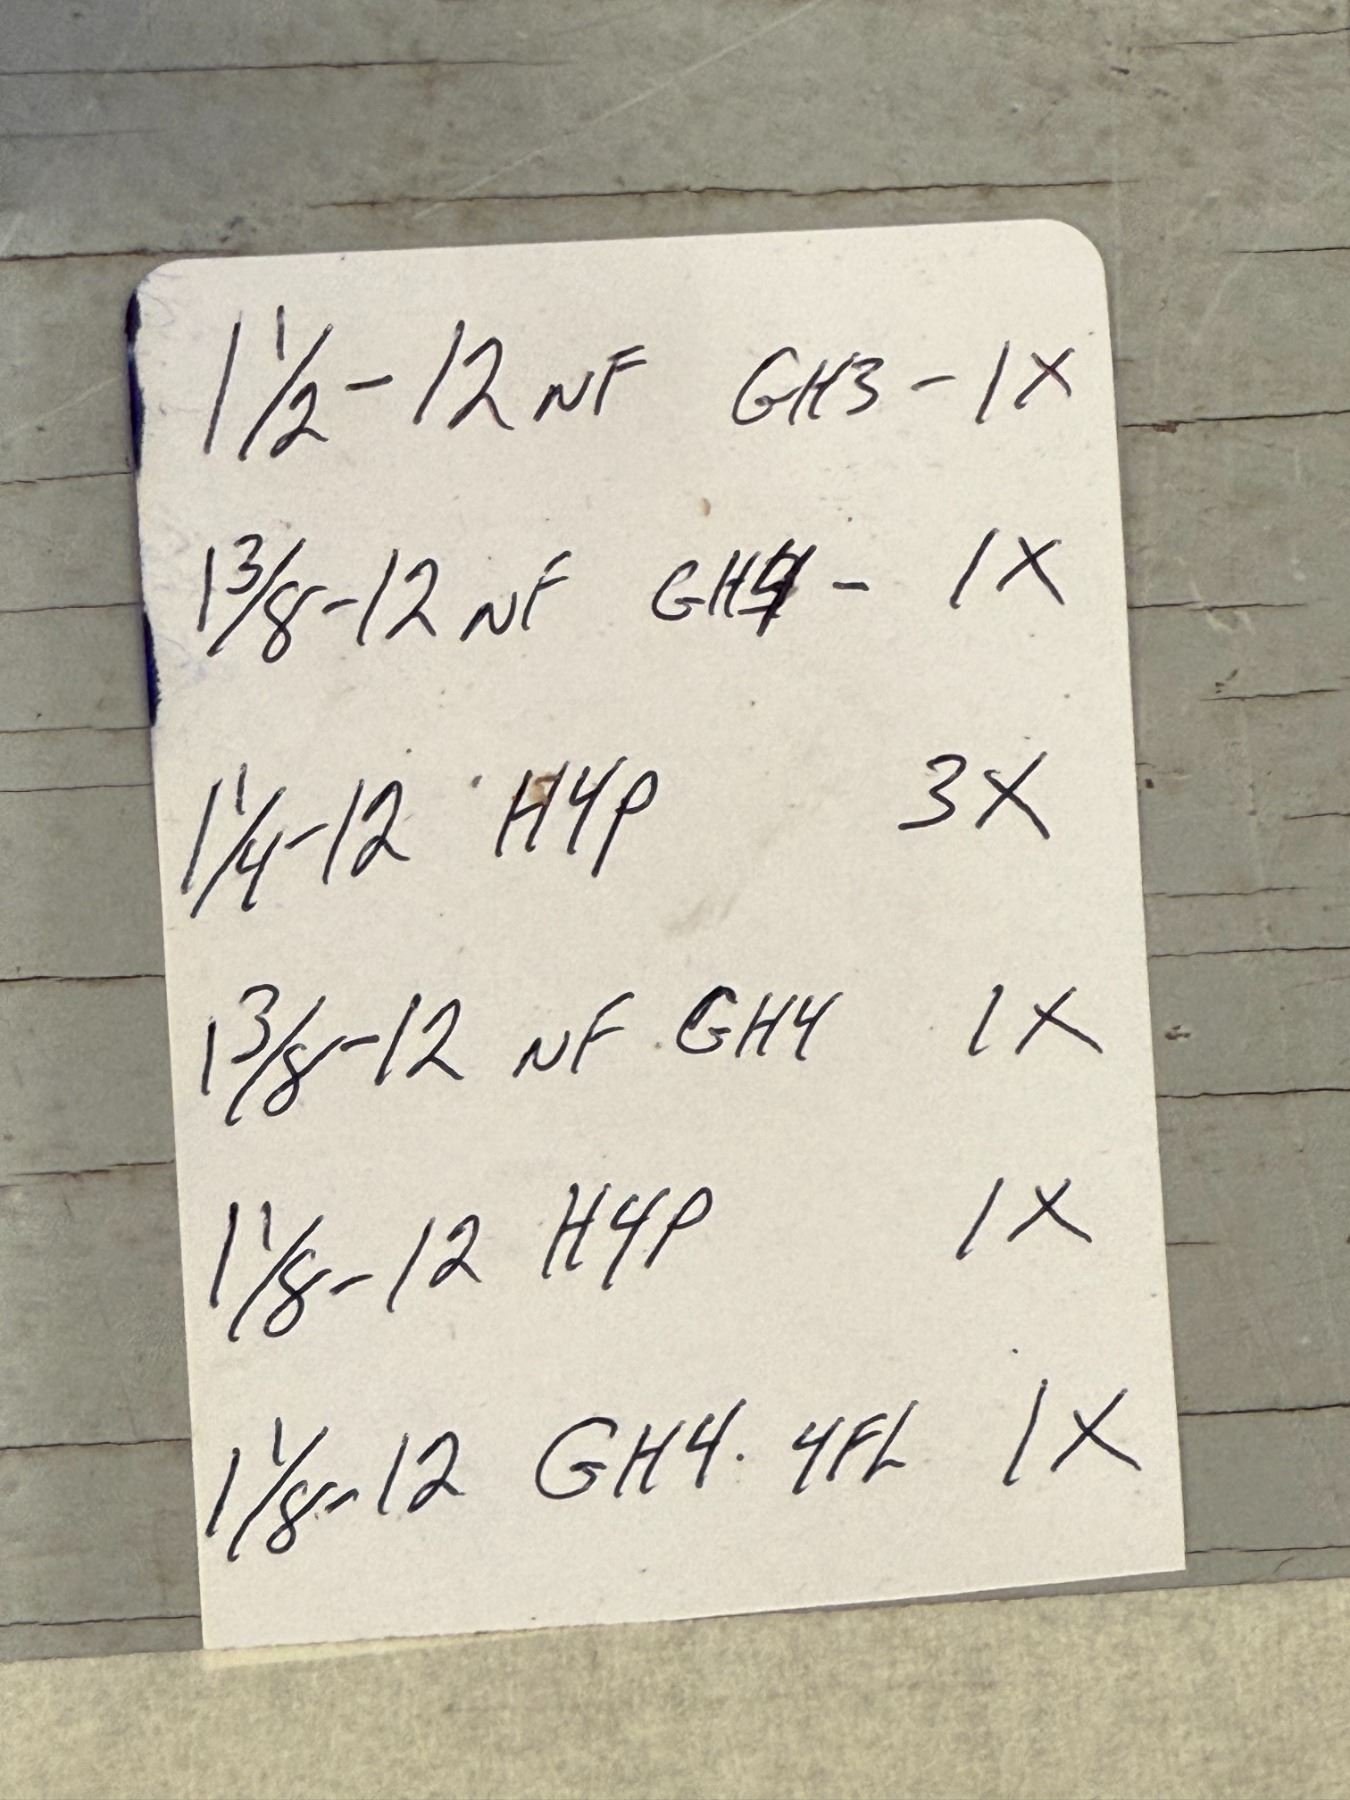 1 1/2 - 12 NF GH3 - 1X
1 3/8 - 12 NF GH4 - 1X
1 1/4 - 12 H4P 3X
1 3/8 - 12 NF GH4 1X
1 1/8 - 12 H4P 1X
1 1/8 - 12 GH4. 4FL 1X